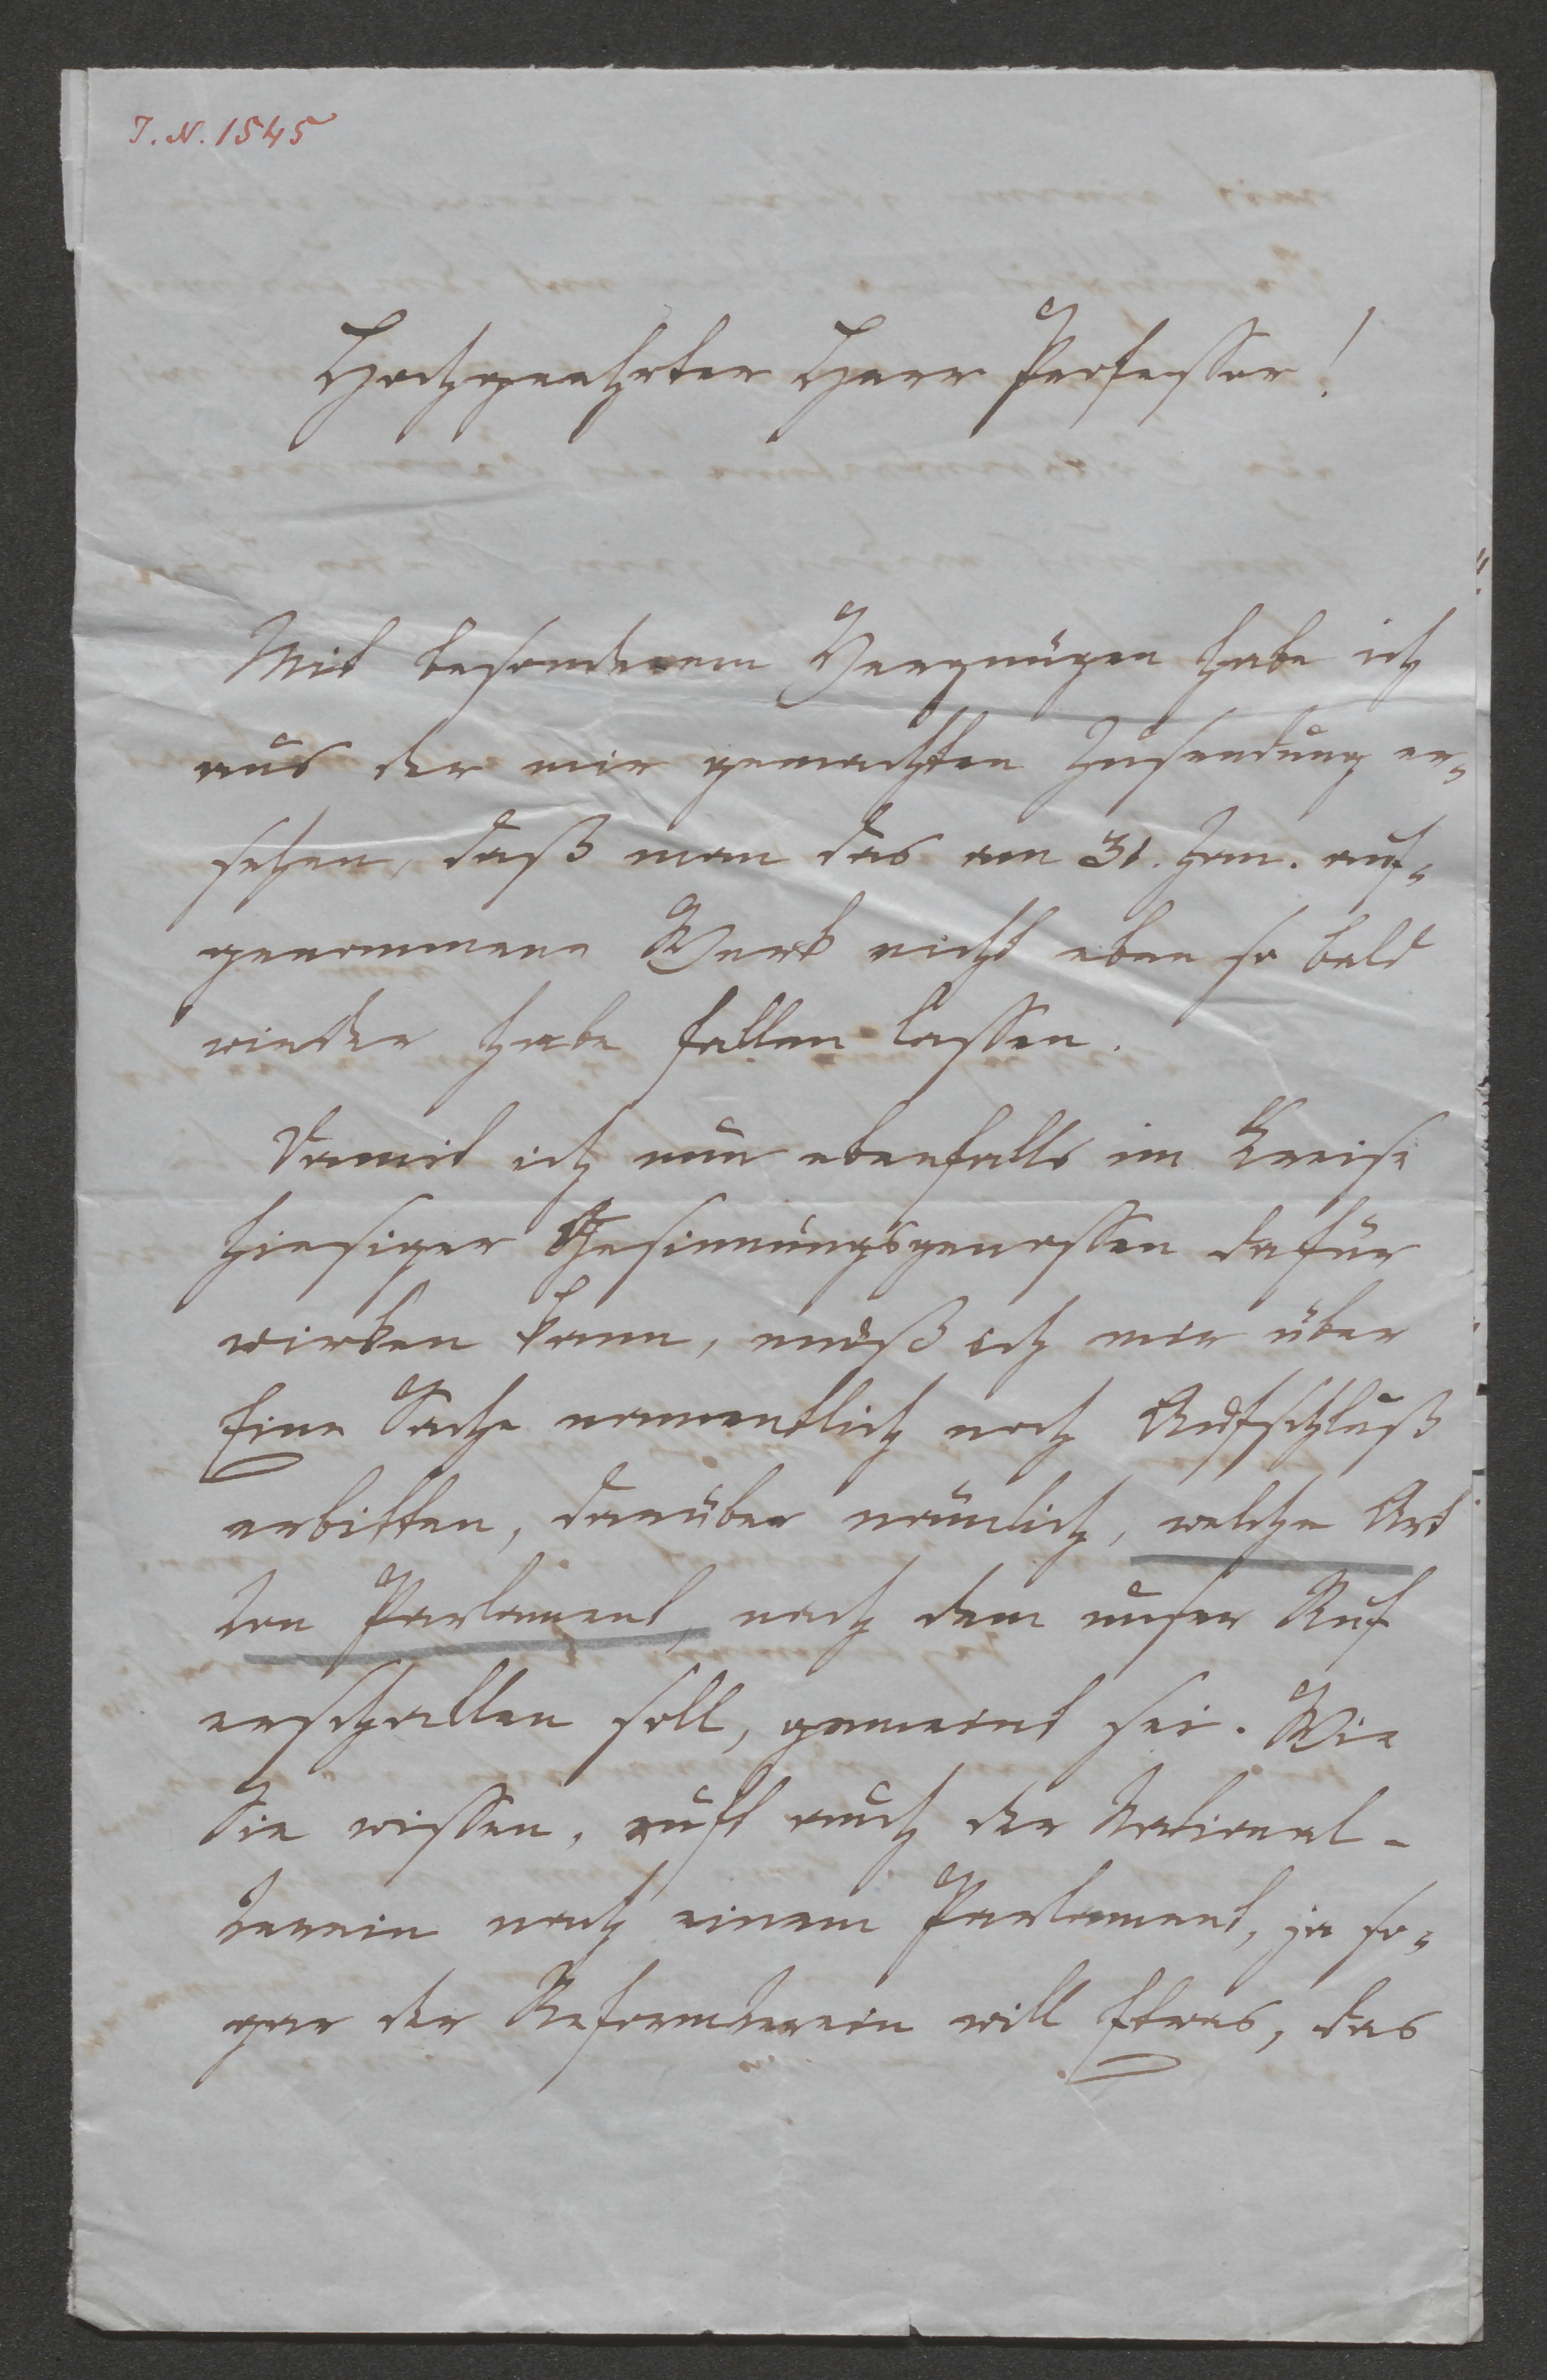 J. N. 1545
Hochgeehrter Herr Professor!
Mit besonderem Vergnügen habe ich
aus der mir gemachten Zusendung er-
sehen, daß man das am 31. Jan. auf-
genommene Werk nicht eben so bald
wieder habe fallen lassen.
Damit ich nun ebenfalls im Kreise
hiesiger Gesinnungsgenossen dafür
wirken kann, muß ich mir über
Eine Sache namentlich noch Aufschluß
erbitten, darüber nämlich, welche Art
von Parlament, nach dem unser Ruf
erschallen soll, gemeint sei. Wie
Sie wissen, ruft auch der National-
verein nach einem Parlament, ja so-
gar der Reformverein will Etwas, das